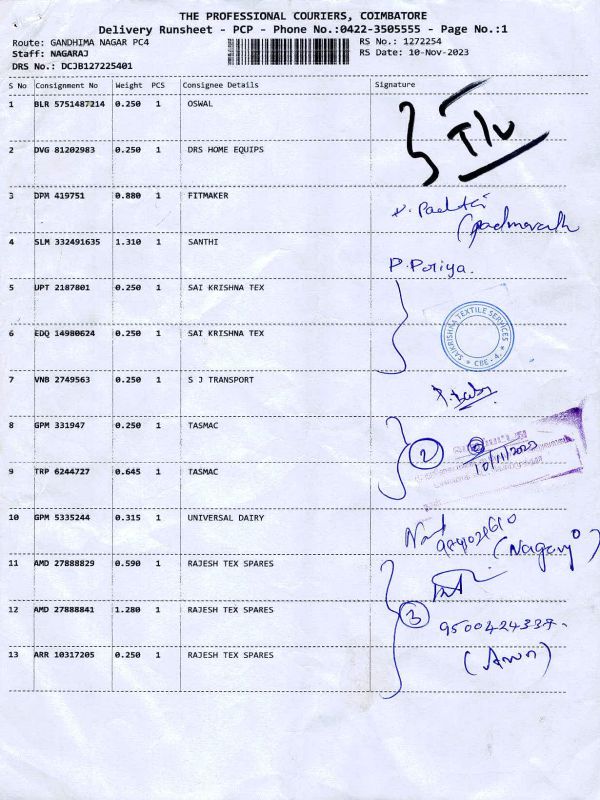 THE PROFESSIONAL COURIERS, COIMBATORE
Delivery Runsheet - PCP - Phone No.:0422-3505555 - Page No.:1
Route: GANDHIMA NAGAR PC4 RS No.: 1272254
Staff: NAGARAJ RS Date: 10-Nov-2023
DRS No.: DCJB127225401
S No Consignment No Weight PCS Consignee Details Signature
1 BLR 5751487214 0.250 1 OSWAL
2 DVG 81202983 0.250 1 DRS HOME EQUIPS
3 DPM 419751 0.880 1 FITMAKER
4 SLM 332491635 1.310 1 SANTHI
P. Poriya.
5 UPT 2187801 0.250 1 SAI KRISHNA TEX
SAIKRISHNA TEXTILE SERVICES
* CBE - 4. *
6 EDQ 14980624 0.250 1 SAI KRISHNA TEX
7 VNB 2749563 0.250 1 S J TRANSPORT
8 GPM 331947 0.250 1 TASMAC
2
9 TRP 6244727 0.645 1 TASMAC
10 GPM 5335244 0.315 1 UNIVERSAL DAIRY
11 AMD 27888829 0.590 1 RAJESH TEX SPARES
12 AMD 27888841 1.280 1 RAJESH TEX SPARES
3
9500424337.
13 ARR 10317205 0.250 1 RAJESH TEX SPARES